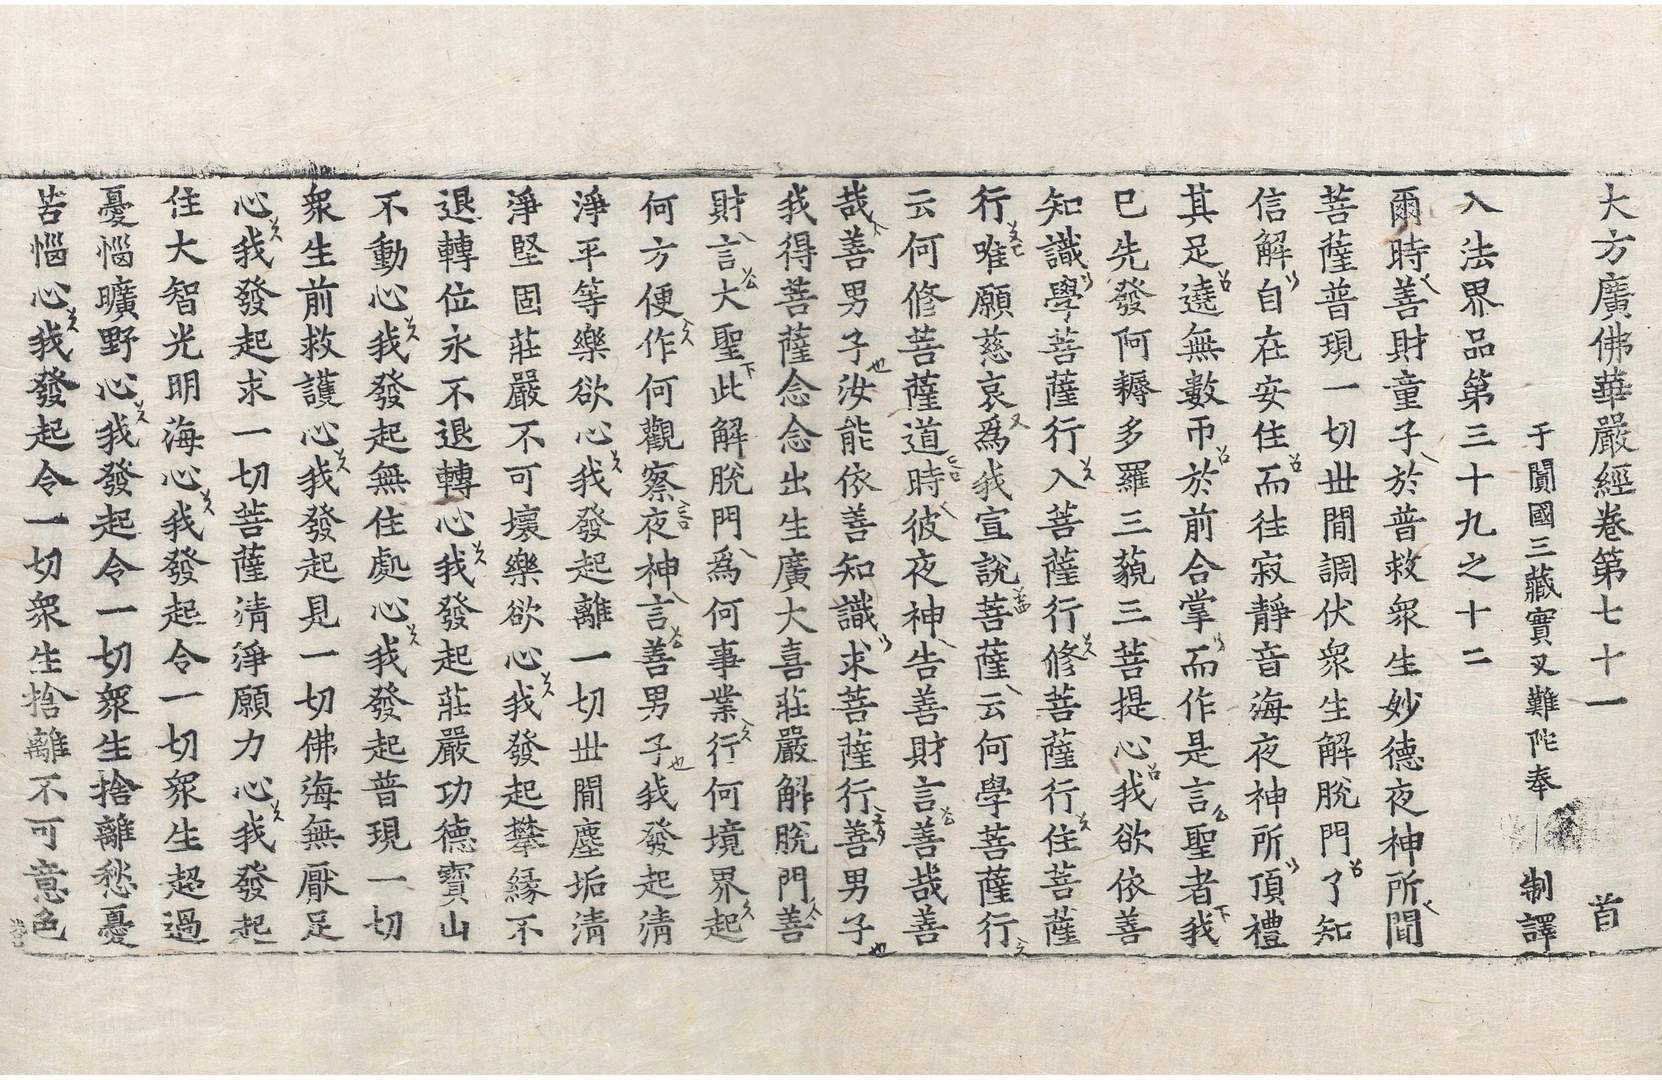 大方廣佛華嚴經卷第七十一 首
于闐國三藏實叉難陀奉 制譯
入法界品第三十九之十二
爾時善財童子於普救衆生妙德夜神所聞
菩薩普現一切世間調伏衆生解脫門了知
信解自在安住而往寂靜音海夜神所頂禮
其足遶無數帀於前合掌而作是言聖者我
已先發阿耨多羅三藐三菩提心我欲依善
知識學菩薩行入菩薩行修菩薩行住菩薩
行唯願慈哀爲我宣說菩薩云何學菩薩行
云何修菩薩道時彼夜神告善財言善哉善
哉善男子汝能依善知識求菩薩行善男子
我得菩薩念念出生廣大喜莊嚴解脫門善
財言大聖此解脫門爲何事業行何境界起
何方便作何觀察夜神言善男子我發起清
淨平等樂欲心我發起離一切世間塵垢清
淨堅固莊嚴不可壞樂欲心我發起攀緣不
退轉位永不退轉心我發起莊嚴功德寶山
不動心我發起無住處心我發起普現一切
衆生前救護心我發起見一切佛海無厭足
心我發起求一切菩薩清淨願力心我發起
住大智光明海心我發起令一切衆生超過
憂惱曠野心我發起令一切衆生捨離愁憂
苦惱心我發起令一切衆生捨離不可意色